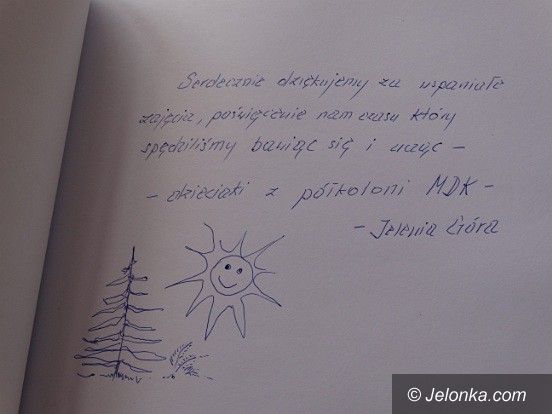 Serdecznie dziękujemy za wspaniałe
zajęcia, poświęcenie nam czasu który
spędziliśmy bawiąc się i ucząc -
- dzieciaki z półkoloni MDK -
- Jelenia Góra
© Jelonka.com